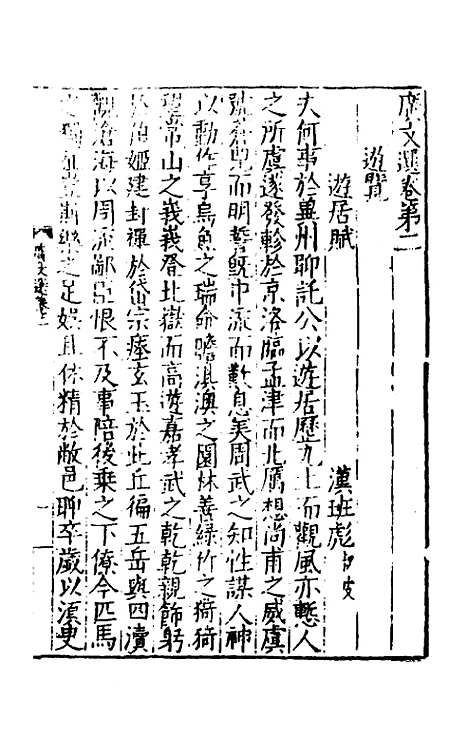 廣文選卷第二
遊覽
遊居賦 漢班彪
夫何事於冀州聊託公以遊居歷九土而觀風亦慙人
之所虞遂發軫於京洛臨孟津而北厲想尚甫之威虞
號蒼兕而明誓既中流而歎息美周武之知性謀人神
以動作享烏魚之瑞命瞻淇澳之園林善綠竹之猗猗
望常山之峩峩登北嶽而高遊嘉孝武之乾乾親飾躬
於伯姬建封禪於岱宗瘞玄玉於此丘徧五岳與四瀆
觀滄海以周流鄙臣恨不及事陪後乘之下僚今匹馬
之足娛且休精於敝邑聊卒歲以湏臾
廣文選卷二
一